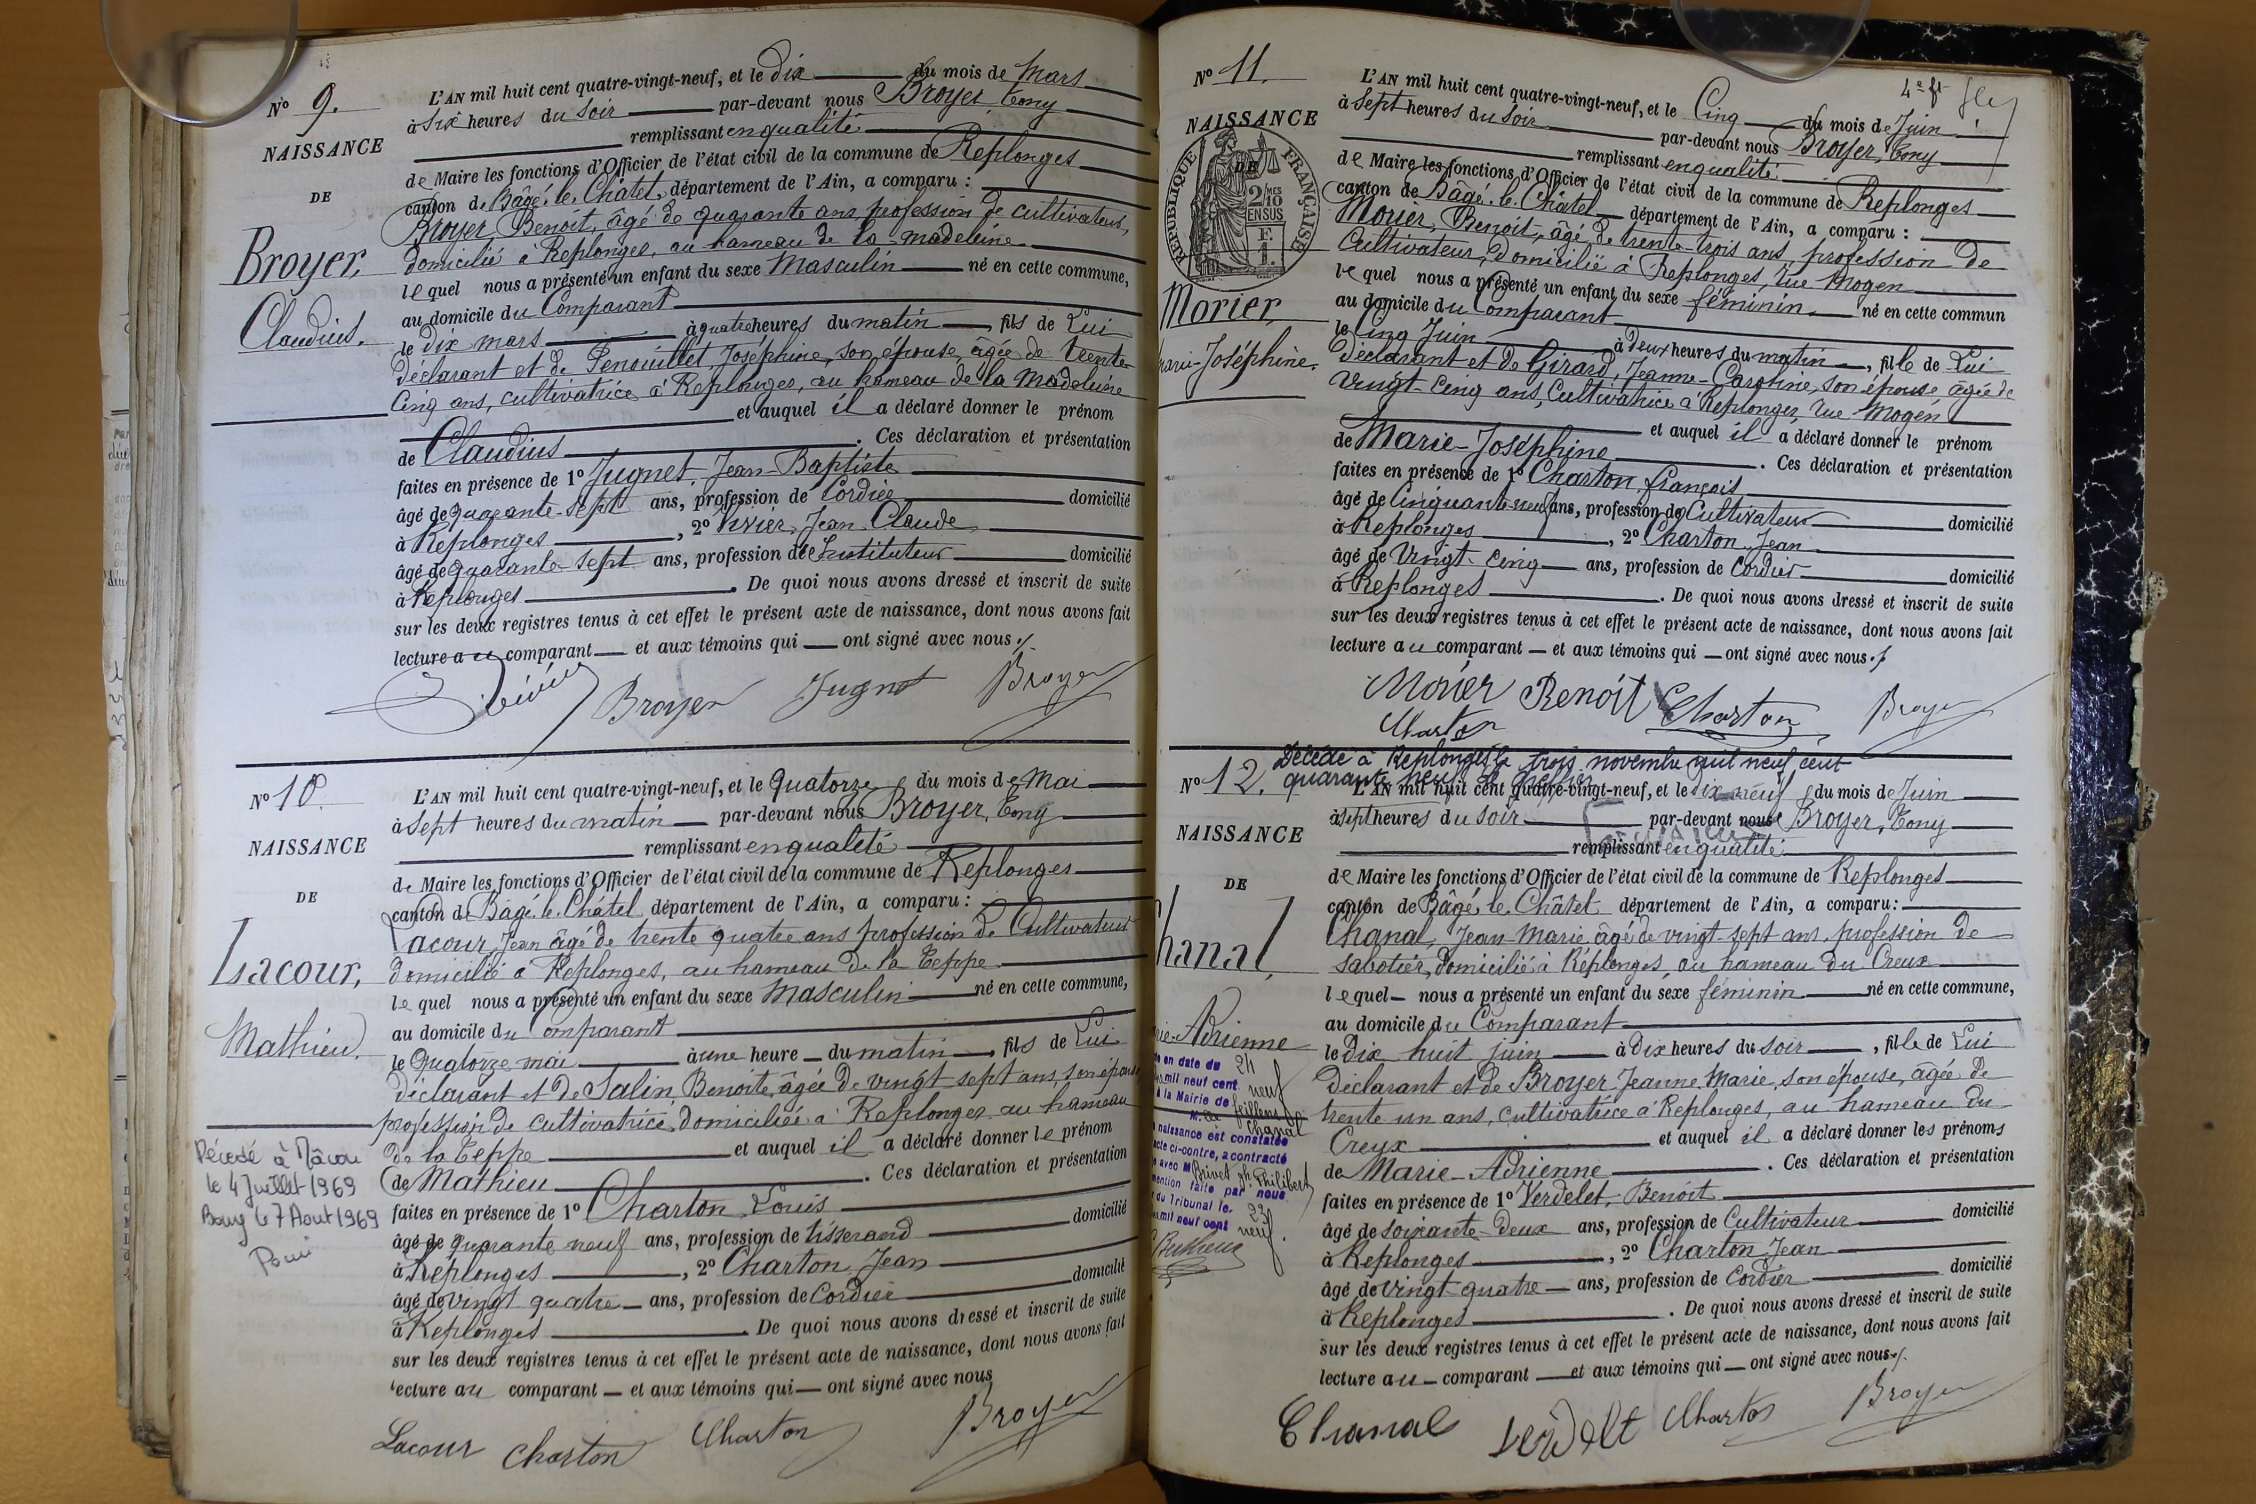 N° 9.
NAISSANCE
DE
Broyer,
Claudius.
L'AN mil huit cent quatre-vingt-neuf, et le dix du mois de Mars
à Six heures du Soir par-devant nous Broyer, Tony
remplissant en qualité
de Maire les fonctions d'Officier de l'état civil de la commune de Replonges
canton de Bâgé-le-Châtel, département de l'Ain, a comparu :
Broyer, Benoit, âgé de quarante ans profession de cultivateur,
domicilié à Replonges, au hameau de la madeleine
lequel nous a présenté un enfant du sexe Masculin né en cette commune,
au domicile du Comparant
le dix mars à quatre heures du matin, fils de Lui
déclarant et de Penouillet, Joséphine, son épouse, âgée de trente-
Cinq ans, cultivatrice à Replonges, au hameau de la Madeleine
et auquel il a déclaré donner le prénom
de Claudius. Ces déclaration et présentation
faites en présence de 1° Jugnet, Jean-Baptiste
âgé de quarante-sept ans, profession de Cordier domicilié
à Replonges, 2° Vivier, Jean Claude
âgé de quarante-sept ans, profession d'Instituteur domicilié
à Replonges. De quoi nous avons dressé et inscrit de suite
sur les deux registres tenus à cet effet le présent acte de naissance, dont nous avons fait
lecture au comparant et aux témoins qui ont signé avec nous.
Vivier Broyer Jugnet Broyer
N° 10.
NAISSANCE
DE
Lacour,
Mathieu.
Décédé à Mâcon
le 4 Juillet 1969
Bourg le 7 Aout 1969
L'AN mil huit cent quatre-vingt-neuf, et le Quatorze du mois de Mai
à Sept heures du matin par-devant nous Broyer, Tony
remplissant en qualité
de Maire les fonctions d'Officier de l'état civil de la commune de Replonges
canton de Bâgé-le-Châtel, département de l'Ain, a comparu :
Lacour, Jean âgé de trente quatre ans profession de Cultivateur
domicilié à Replonges, au hameau de la Teppe
lequel nous a présenté un enfant du sexe Masculin né en cette commune,
au domicile du Comparant
le Quatorze mai à une heure du matin, fils de Lui
déclarant et de Salin, Benoite, âgée de vingt-sept ans, son épouse
profession de cultivatrice, domiciliée à Replonges au hameau
de la Teppe et auquel il a déclaré donner le prénom
de Mathieu. Ces déclaration et présentation
faites en présence de 1° Charton, Louis
âgé de quarante neuf ans, profession de tisserand domicilié
à Replonges, 2° Charton Jean
âgé de vingt quatre ans, profession de Cordier domicilié
à Replonges. De quoi nous avons dressé et inscrit de suite
sur les deux registres tenus à cet effet le présent acte de naissance, dont nous avons fait
lecture au comparant et aux témoins qui ont signé avec nous
Lacour Charton Charton Broyer
4e ft
N° 11.
NAISSANCE
DE
RÉPUBLIQUE FRANÇAISE
2/10 EN SUS
F. 1.
Morier,
Marie-Joséphine.
L'AN mil huit cent quatre-vingt-neuf, et le Cinq du mois de Juin
à Sept heures du Soir par-devant nous Broyer, Tony
remplissant en qualité
de Maire les fonctions d'Officier de l'état civil de la commune de Replonges
canton de Bâgé-le-Châtel département de l'Ain, a comparu :
Morier, Benoit, âgé de trente-trois ans, profession de
Cultivateur, domicilié à Replonges, rue Mogen
lequel nous a présenté un enfant du sexe féminin né en cette commun
au domicile du Comparant
le Cinq Juin à deux heures du matin, fille de Lui
déclarant et de Girard, Jeanne-Caroline, son épouse âgée de
Vingt-cinq ans, Cultivatrice à Replonges, rue Mogen
et auquel il a déclaré donner le prénom
de Marie-Joséphine. Ces déclaration et présentation
faites en présence de 1° Charton, françois
âgé de Cinquante-neuf ans, profession de Cultivateur domicilié
à Replonges, 2° Charton Jean
âgé de Vingt-cinq ans, profession de Cordier domicilié
à Replonges. De quoi nous avons dressé et inscrit de suite
sur les deux registres tenus à cet effet le présent acte de naissance, dont nous avons fait
lecture au comparant et aux témoins qui ont signé avec nous.
Morier Benoit Charton Broyer
Charton
Décédé à Replonges le trois novembre mil neuf cent
quarante neuf Le Greffier
N° 12.
NAISSANCE
DE
Chanal,
Marie-Adrienne
en date du 24
mil neuf cent neuf
à la Mairie de feillens
Chanal
naissance est constatée
acte ci-contre, a contracté
avec M Brivet Ph. Philibert
mention faite par nous
du Tribunal le
mil neuf cent neuf.
L'AN mil huit cent quatre-vingt-neuf, et le dix-neuf du mois de Juin
à sept heures du Soir par-devant nous Broyer, Tony
remplissant en qualité
de Maire les fonctions d'Officier de l'état civil de la commune de Replonges
canton de Bâgé-le-Châtel département de l'Ain, a comparu :
Chanal, Jean-Marie âgé de vingt-sept ans, profession de
Sabotier, domicilié à Replonges, au hameau du Creux
lequel nous a présenté un enfant du sexe féminin né en cette commune,
au domicile du Comparant
le dix huit juin à dix heures du soir, fille de Lui
Déclarant et de Broyer Jeanne Marie, son épouse, âgée de
trente un ans, cultivatrice à Replonges, au hameau du
Creux et auquel il a déclaré donner les prénoms
de Marie-Adrienne. Ces déclaration et présentation
faites en présence de 1° Verdelet, Benoit
âgé de soixante-deux ans, profession de Cultivateur domicilié
à Replonges, 2° Charton, Jean
âgé de vingt-quatre ans, profession de Cordier domicilié
à Replonges. De quoi nous avons dressé et inscrit de suite
sur les deux registres tenus à cet effet le présent acte de naissance, dont nous avons fait
lecture au comparant et aux témoins qui ont signé avec nous.
Chanal Verdelet Charton Broyer